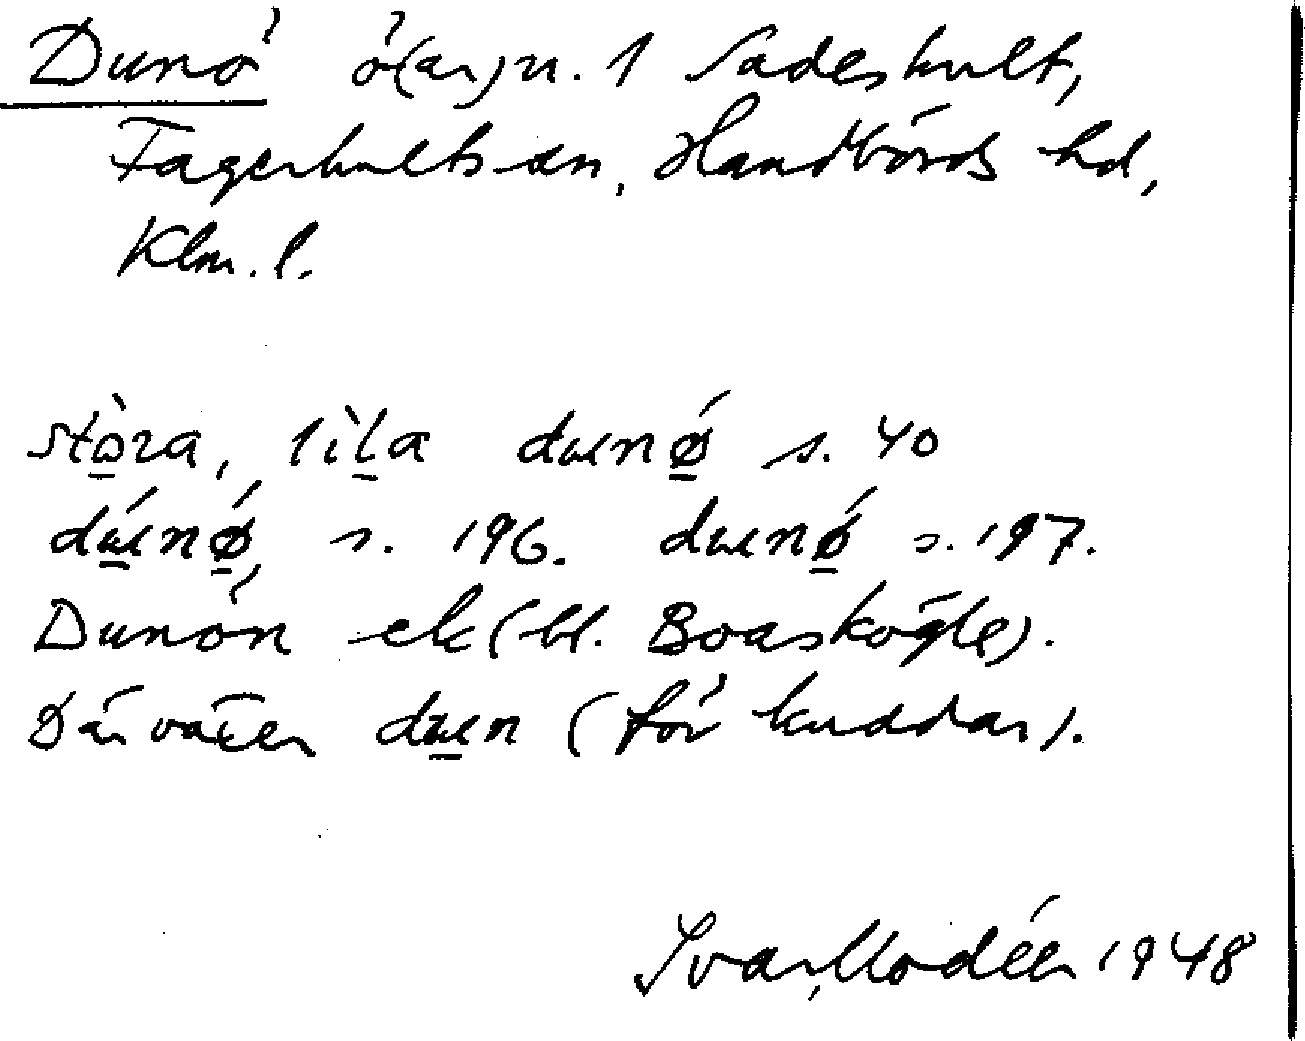 Dunö ö(ar) u. 1 Sadeshult,
Fagerhults sn, Handbörds hd,
Klm. l.
stòra, lìla dunǿ s. 40
dúnǿ, s. 196. dunǿ s. 197.
Dunön ek (bl. Boaskögle).
Där växer dun (för kuddar).
Ivar Modéer 1948